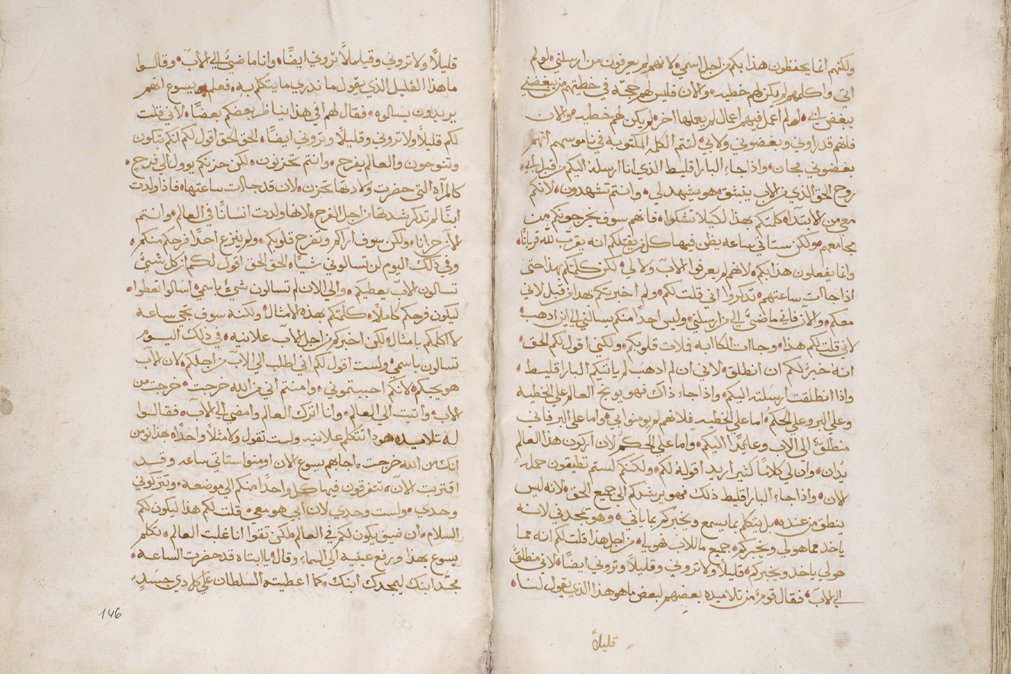 ولكنهم انما يفعلون هذا بكم من اجل اسمي لانهم لم يعرفون من ارسلني لو لم
اتي واكلمهم لم يكن لهم خطيه والان فليس لهم حجه في خطيتهم من يبغضني
يبغض ابي لو لم اعمل فيهم اعمال لم يعملها اخر لم يكن لهم خطيه والان
فانهم قد راوني وبغضوني ولابي لتتم الكلمه المكتوبه في ناموسهم انهم
بغضوني مجان واذا جاء البارقليط الذي انا ارسله اليكم من قبل ابي
روح الحق الذي من الاب ينبثق هو يشهد لي وانتم تشهدون لانكم
معي من الابتدا كلمتكم بهذا لكيلا تشكوا فانهم سوف يخرجونكم من
مجامعهم ولكن ستاتي ساعه يظن فيها كل من يقتلكم انه يقرب لله قربانا
وانما يفعلون هذا بكم لانهم لم يعرفوا الاب ولا لي لكن كلمتكم بهذا حتى
اذا جاات ساعتهم تذكروا اني قلت لكم ولم اخبركم بهذا من قبل لاني
معكم والآن فاني ماضي الى من ارسلني وليس احدا منكم يسالني الى اين اذهب
لاني قلت لكم هذا وجاات الكابه فملات قلوبكم ولكني اقول لكم الحق
انه خير لكم ان انطلق لاني ان لم اذهب لم ياتيكم البارقليط
واذا انطلقت ارسلته اليكم واذا جاء ذاك فهو يوبخ العالم على الخطيه
وعلى البر وعلى الحكم اما على الخطيه فلانهم لم يومنوا بي واما على البر فاني
منطلق الى الاب وعائدا اليكم واما على الحكم لان اركون هذا العالم
يدان وان لي كلاما كثيرا اريد اقوله لكم ولكنكم لستم تطيقون حمله
الان واذا جاء البارقليط ذلك فهو يرشدكم الى جميع الحق لانه ليس
ينطق من عنده بل يتكلم بما يسمع ويخبركم بما ياتي وهو يمجدني لانه
ياخد مما هو لي ويخبركم جميع ما للاب فهو لي من اجل هذا قلت لكم انه مما
هو لي ياخد ويخبركم قليلا ولا تروني وقليلا وتروني ايضا لاني منطلق
الى الاب فقال قوم من تلاميده بعضهم لبعض ما هو هذا الذي يقول لنا
قليلاً
قليلاً ولا تروني وقليلاً تروني ايضًا وانا ماضي الى الاب وقالوا
ما هذا القليل الذي يقول ما ندري ما يتكلم به فعلم يسوع انهم
يريدون يسالوه فقال لهم في هذا يناظر بعضكم بعضا لاني قلت
لكم قليلا ولا تروني وقليلا وتروني ايضا الحق الحق اقول لكم انكم تبكون
وتنوحون والعالم يفرح وانتم تحزنون لكن حزنكم يوول الى فرح
كالمراه التي حضرت ولادتها تحزن لان قد جاات ساعتها فاذا ولدت
ابنا لم تذكر شدتها من اجل الفرح لانها ولدت انسانا في العالم وانتم
الآن حزانا ولكن سوف اراكم وتفرح قلوبكم ولم ينزع احدا فرحكم منكم
وفي ذلك اليوم لن تسالوني شيا الحق الحق اقول لكم ان كل شي
تسالون الاب يعطيكم والى الان لم تسالون شي باسمي اسالوا تعطوا
ليكون فرحكم كاملا كلمتكم بهذه الامثال ولكنه سوف تجي ساعة
لا اكلمكم بامثال لكن اخبركم من اجل الاب علانيه في ذلك اليوم
تسالون باسمي ولست اقول لكم اني اطلب الى الاب من اجلكم لان الاب
هو يحبكم لانكم احببتموني وامنتم اني من الله خرجت خرجت من
الاب واتيت الى العالم وانا اترك العالم وامضي الى الاب فقالوا
له تلاميده هوذا تتكلم علانيه ولست تقول ولا مثلا واحدا هذا نومن
انك من الله خرجت اجابهم يسوع الان اومنوا ستاتي ساعه وقد
اقتربت الآن تتفرقون فيها كل واحدا منكم الى موضعه وتتركوني
وحدي ولست وحدي لان ابي هو معي قلت لكم هذا ليكون لكم
السلام ان ضيق يكون لكم في العالم لكن تقوا انا غلبت العالم تكلم
يسوع بهذا ورفع عينيه الى السماء وقال يا ابتاه قد حضرت الساعه
مجّد ابنك ليمجدك ابنك كما اعطيته السلطان على كل ذي جسد
146